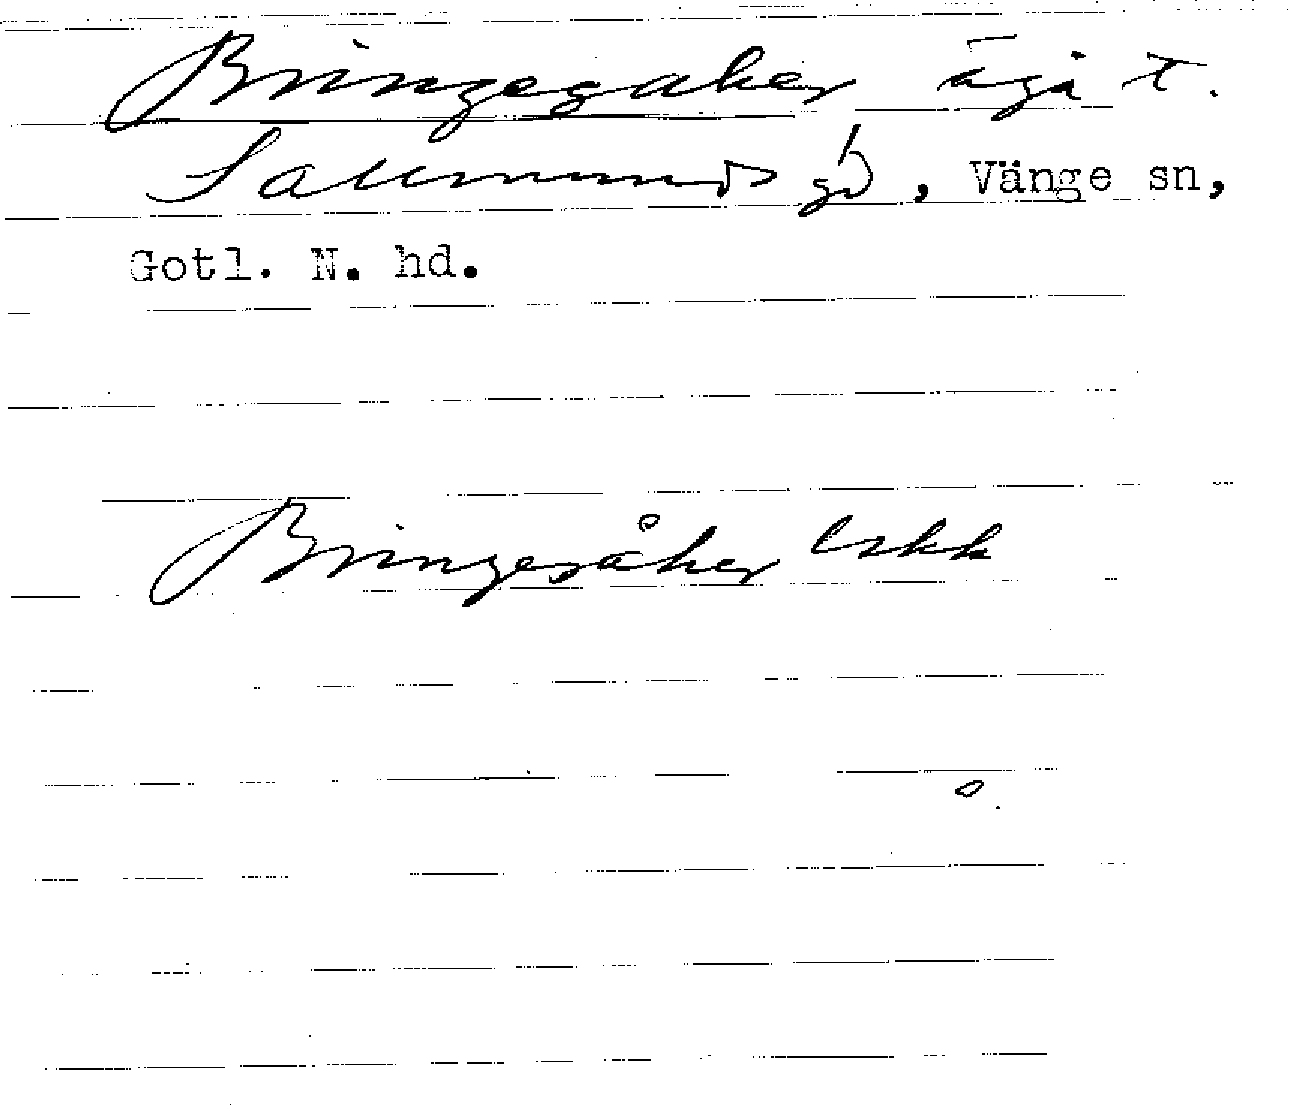 Bringesaker ägå t.
Sallmunds gd, Vänge sn,
Gotl. N. hd.
Bringesåker Lskk